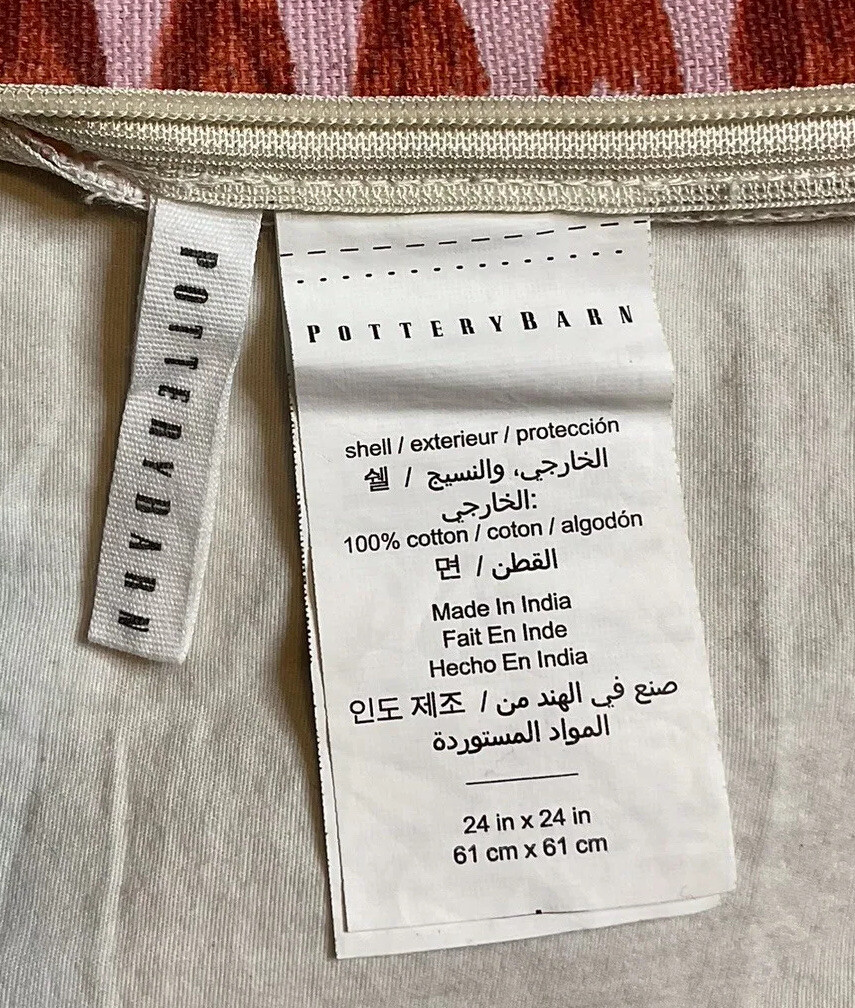 POTTERYBARN
POTTERYBARN
shell / exterieur / protección
쉘 / الخارجي، والنسيج
الخارجي:
100% cotton / coton / algodón
면 / القطن
Made In India
Fait En Inde
Hecho En India
인도 제조 / صنع في الهند من
المواد المستوردة
24 in x 24 in
61 cm x 61 cm